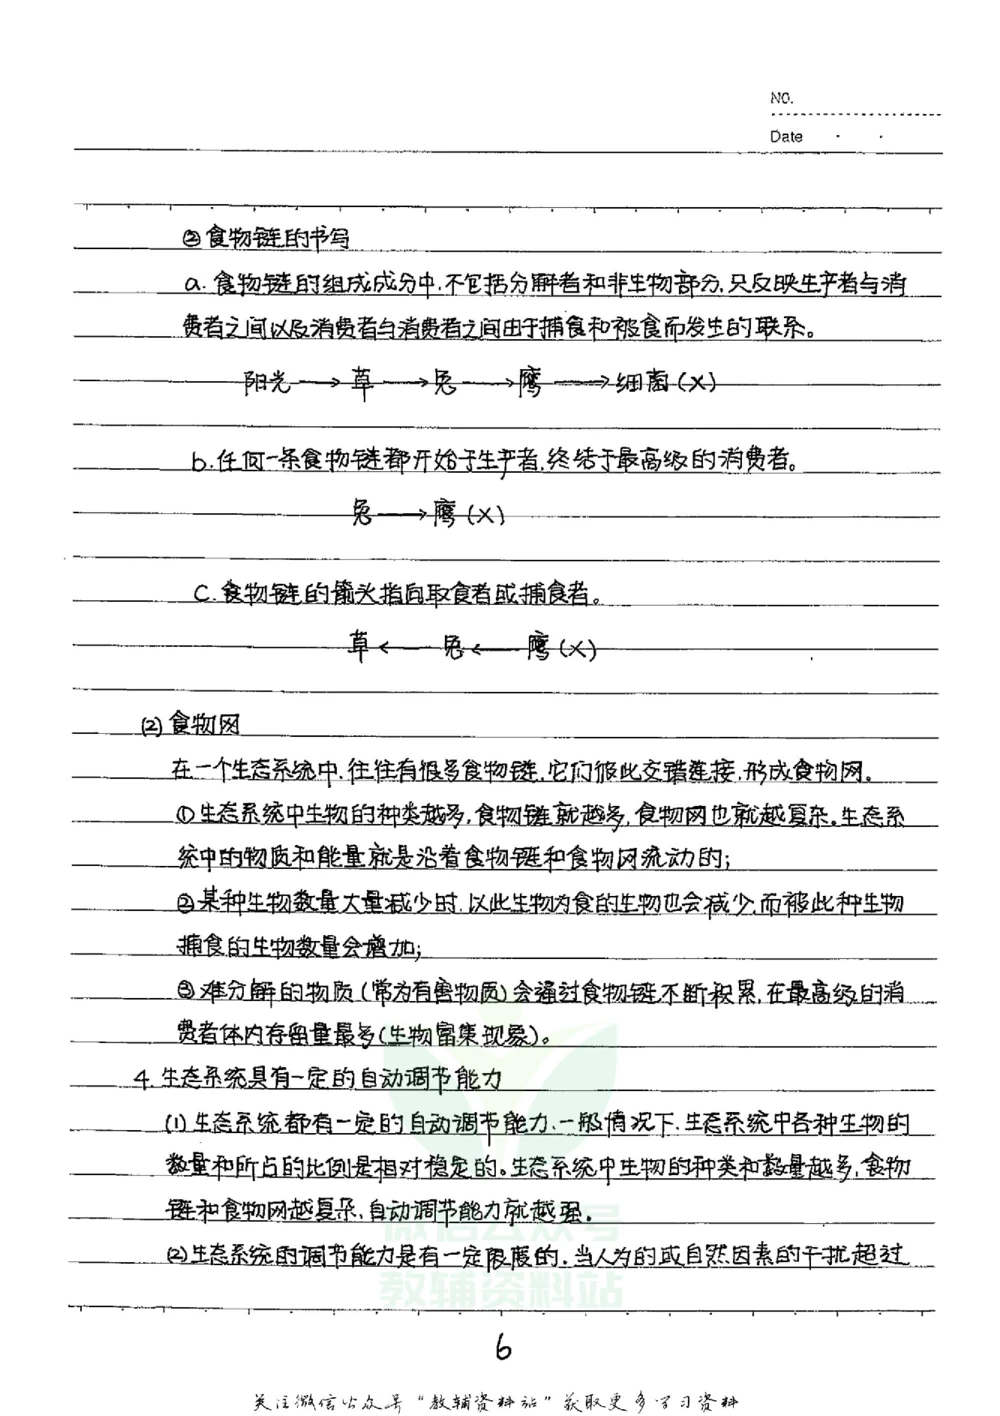 NO.
Date
②食物链的书写
a.食物链的组成成分中,不包括分解者和非生物部分,只反映生产者与消
费者之间以及消费者与消费者之间由于捕食和被食而发生的联系。
阳光→草→兔→鹰→细菌(×)
b.任何一条食物链都开始于生产者,终结于最高级的消费者。
兔→鹰(×)
C.食物链的箭头指向取食者或捕食者。
草←兔←鹰(×)
(2)食物网
在一个生态系统中,往往有很多食物链,它们彼此交错连接,形成食物网。
①生态系统中生物的种类越多,食物链就越多,食物网也就越复杂。生态系
统中的物质和能量就是沿着食物链和食物网流动的;
②某种生物数量大量减少时,以此生物为食的生物也会减少,而被此种生物
捕食的生物数量会增加;
③难分解的物质(常为有害物质)会通过食物链不断积累,在最高级的消
费者体内存留量最多(生物富集现象)。
4.生态系统具有一定的自动调节能力
(1)生态系统都有一定的自动调节能力,一般情况下,生态系统中各种生物的
数量和所占的比例是相对稳定的。生态系统中生物的种类和数量越多,食物
链和食物网越复杂,自动调节能力就越强。
(2)生态系统的调节能力是有一定限度的,当人为的或自然因素的干扰超过
微信公众号
教辅资料站
6
关注微信公众号“教辅资料站”获取更多学习资料